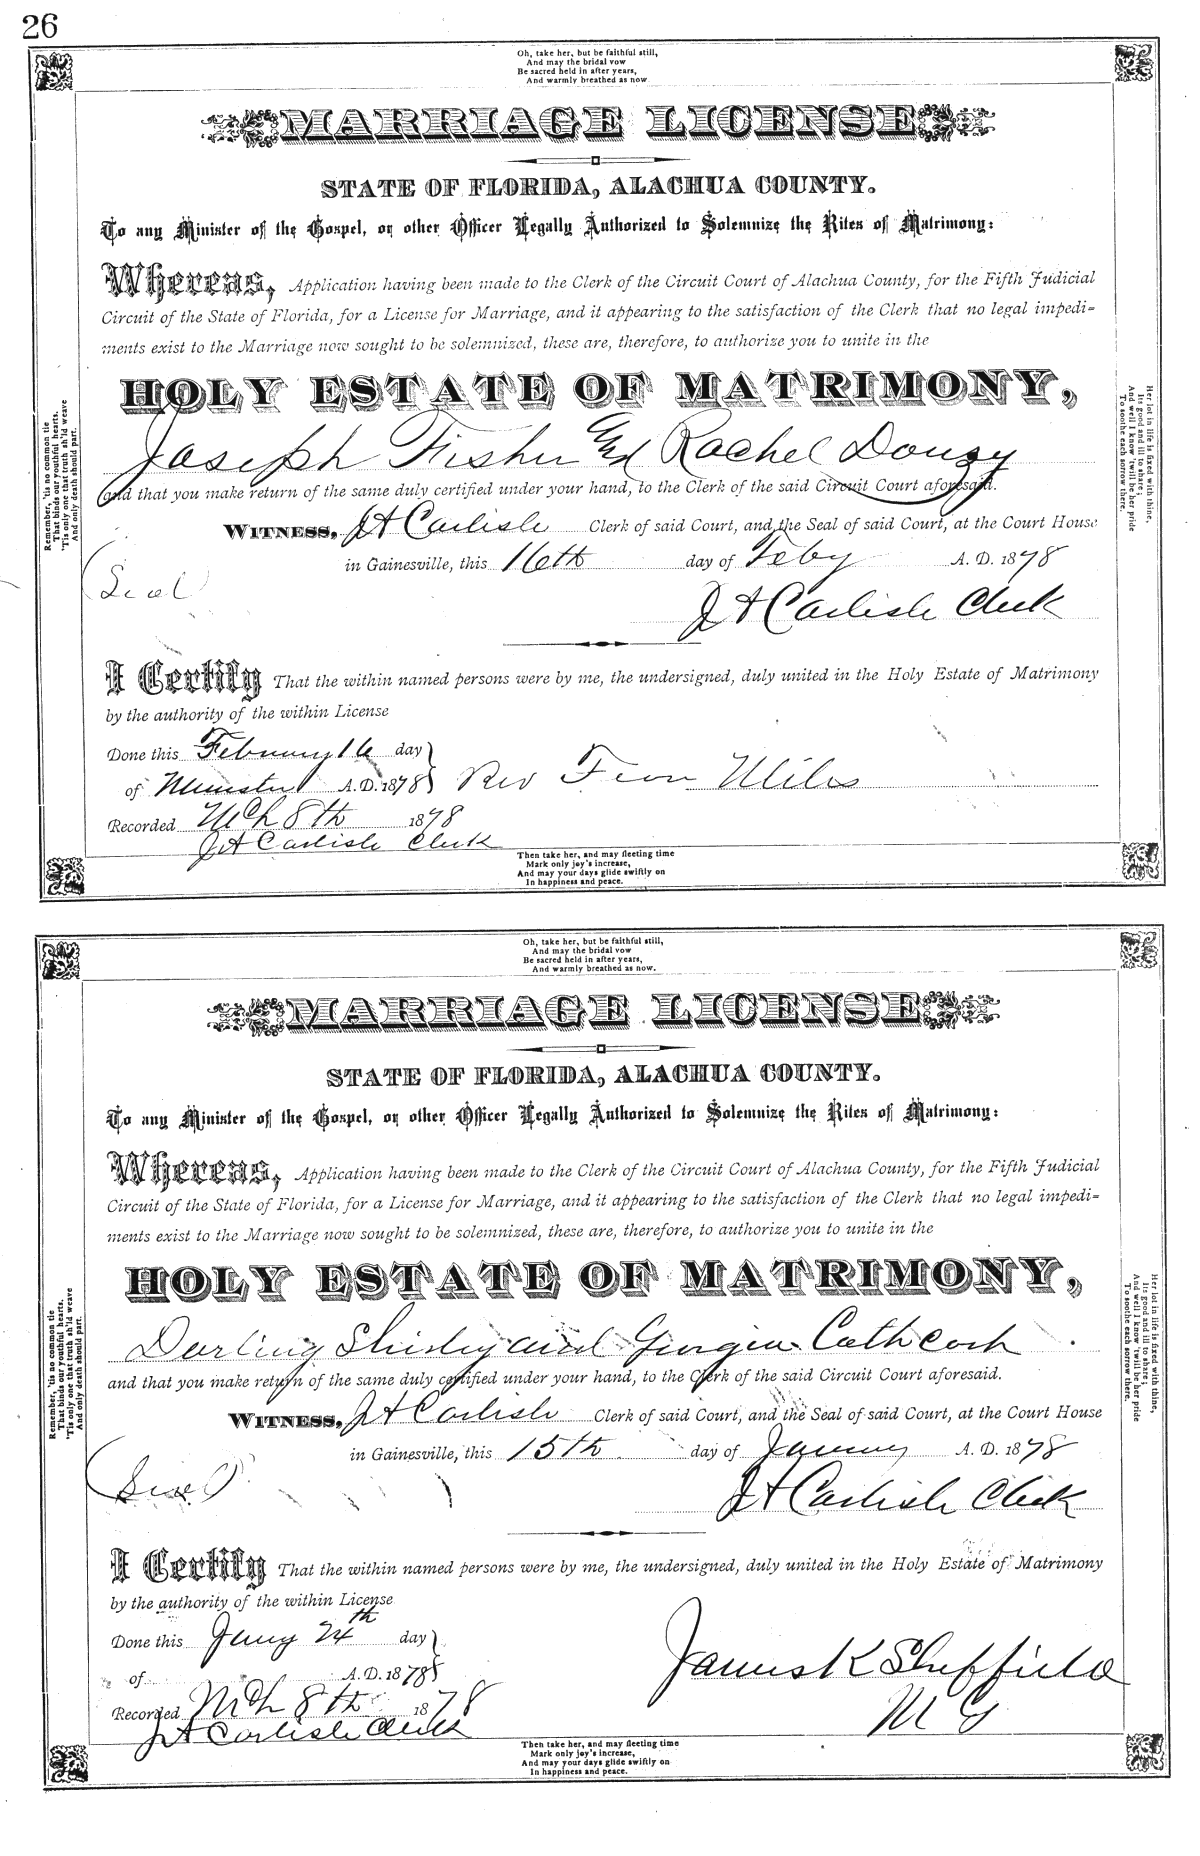 26
Oh, take her, but be faithful still,
And may the bridal vow
Be sacred held in after years,
And warmly breathed as now.
MARRIAGE LICENSE
STATE OF FLORIDA, ALACHUA COUNTY.
To any Minister of the Gospel, or other Officer Legally Authorized to Solemnize the Rites of Matrimony:
Whereas, Application having been made to the Clerk of the Circuit Court of Alachua County, for the Fifth Judicial
Circuit of the State of Florida, for a License for Marriage, and it appearing to the satisfaction of the Clerk that no legal impedi-
ments exist to the Marriage now sought to be solemnized, these are, therefore, to authorize you to unite in the
HOLY ESTATE OF MATRIMONY,
Joseph Fisher and Rachel Douzy
and that you make return of the same duly certified under your hand, to the Clerk of the said Circuit Court aforesaid.
WITNESS, J A Carlisle Clerk of said Court, and the Seal of said Court, at the Court House
in Gainesville, this 16th day of Feby A. D. 1878
Seal
J A Carlisle Clerk
I Certify That the within named persons were by me, the undersigned, duly united in the Holy Estate of Matrimony
by the authority of the within License
Done this February 16 day
of Minister A. D. 1878 Rev Miles
Recorded Mch 8th 1878
J A Carlisle Clerk
Then take her, and may fleeting time
Mark only joy's increase,
And may your days glide swiftly on
In happiness and peace.
Remember, 'tis no common tie
That binds our youthful hearts,
'Tis only one that truth sh'ld weave
And only death should part.
Her lot in life is fixed with thine,
Its good and ill to share;
And well I know 'twill be her pride
To soothe each sorrow there.
Oh, take her, but be faithful still,
And may the bridal vow
Be sacred held in after years,
And warmly breathed as now.
MARRIAGE LICENSE
STATE OF FLORIDA, ALACHUA COUNTY.
To any Minister of the Gospel, or other Officer Legally Authorized to Solemnize the Rites of Matrimony:
Whereas, Application having been made to the Clerk of the Circuit Court of Alachua County, for the Fifth Judicial
Circuit of the State of Florida, for a License for Marriage, and it appearing to the satisfaction of the Clerk that no legal impedi-
ments exist to the Marriage now sought to be solemnized, these are, therefore, to authorize you to unite in the
HOLY ESTATE OF MATRIMONY,
Darling Shirley and Georgia Cathcart
and that you make return of the same duly certified under your hand, to the Clerk of the said Circuit Court aforesaid.
WITNESS, J A Carlisle Clerk of said Court, and the Seal of said Court, at the Court House
in Gainesville, this 15th day of January A. D. 1878
Seal
J A Carlisle Clerk
I Certify That the within named persons were by me, the undersigned, duly united in the Holy Estate of Matrimony
by the authority of the within License
Done this Jany 24th day
of A. D. 1878 James K Sheffield
Recorded Mch 8th 1878 M G
J A Carlisle Clerk
Then take her, and may fleeting time
Mark only joy's increase,
And may your days glide swiftly on
In happiness and peace.
Remember, 'tis no common tie
That binds our youthful hearts,
'Tis only one that truth sh'ld weave
And only death should part.
Her lot in life is fixed with thine,
Its good and ill to share;
And well I know 'twill be her pride
To soothe each sorrow there.